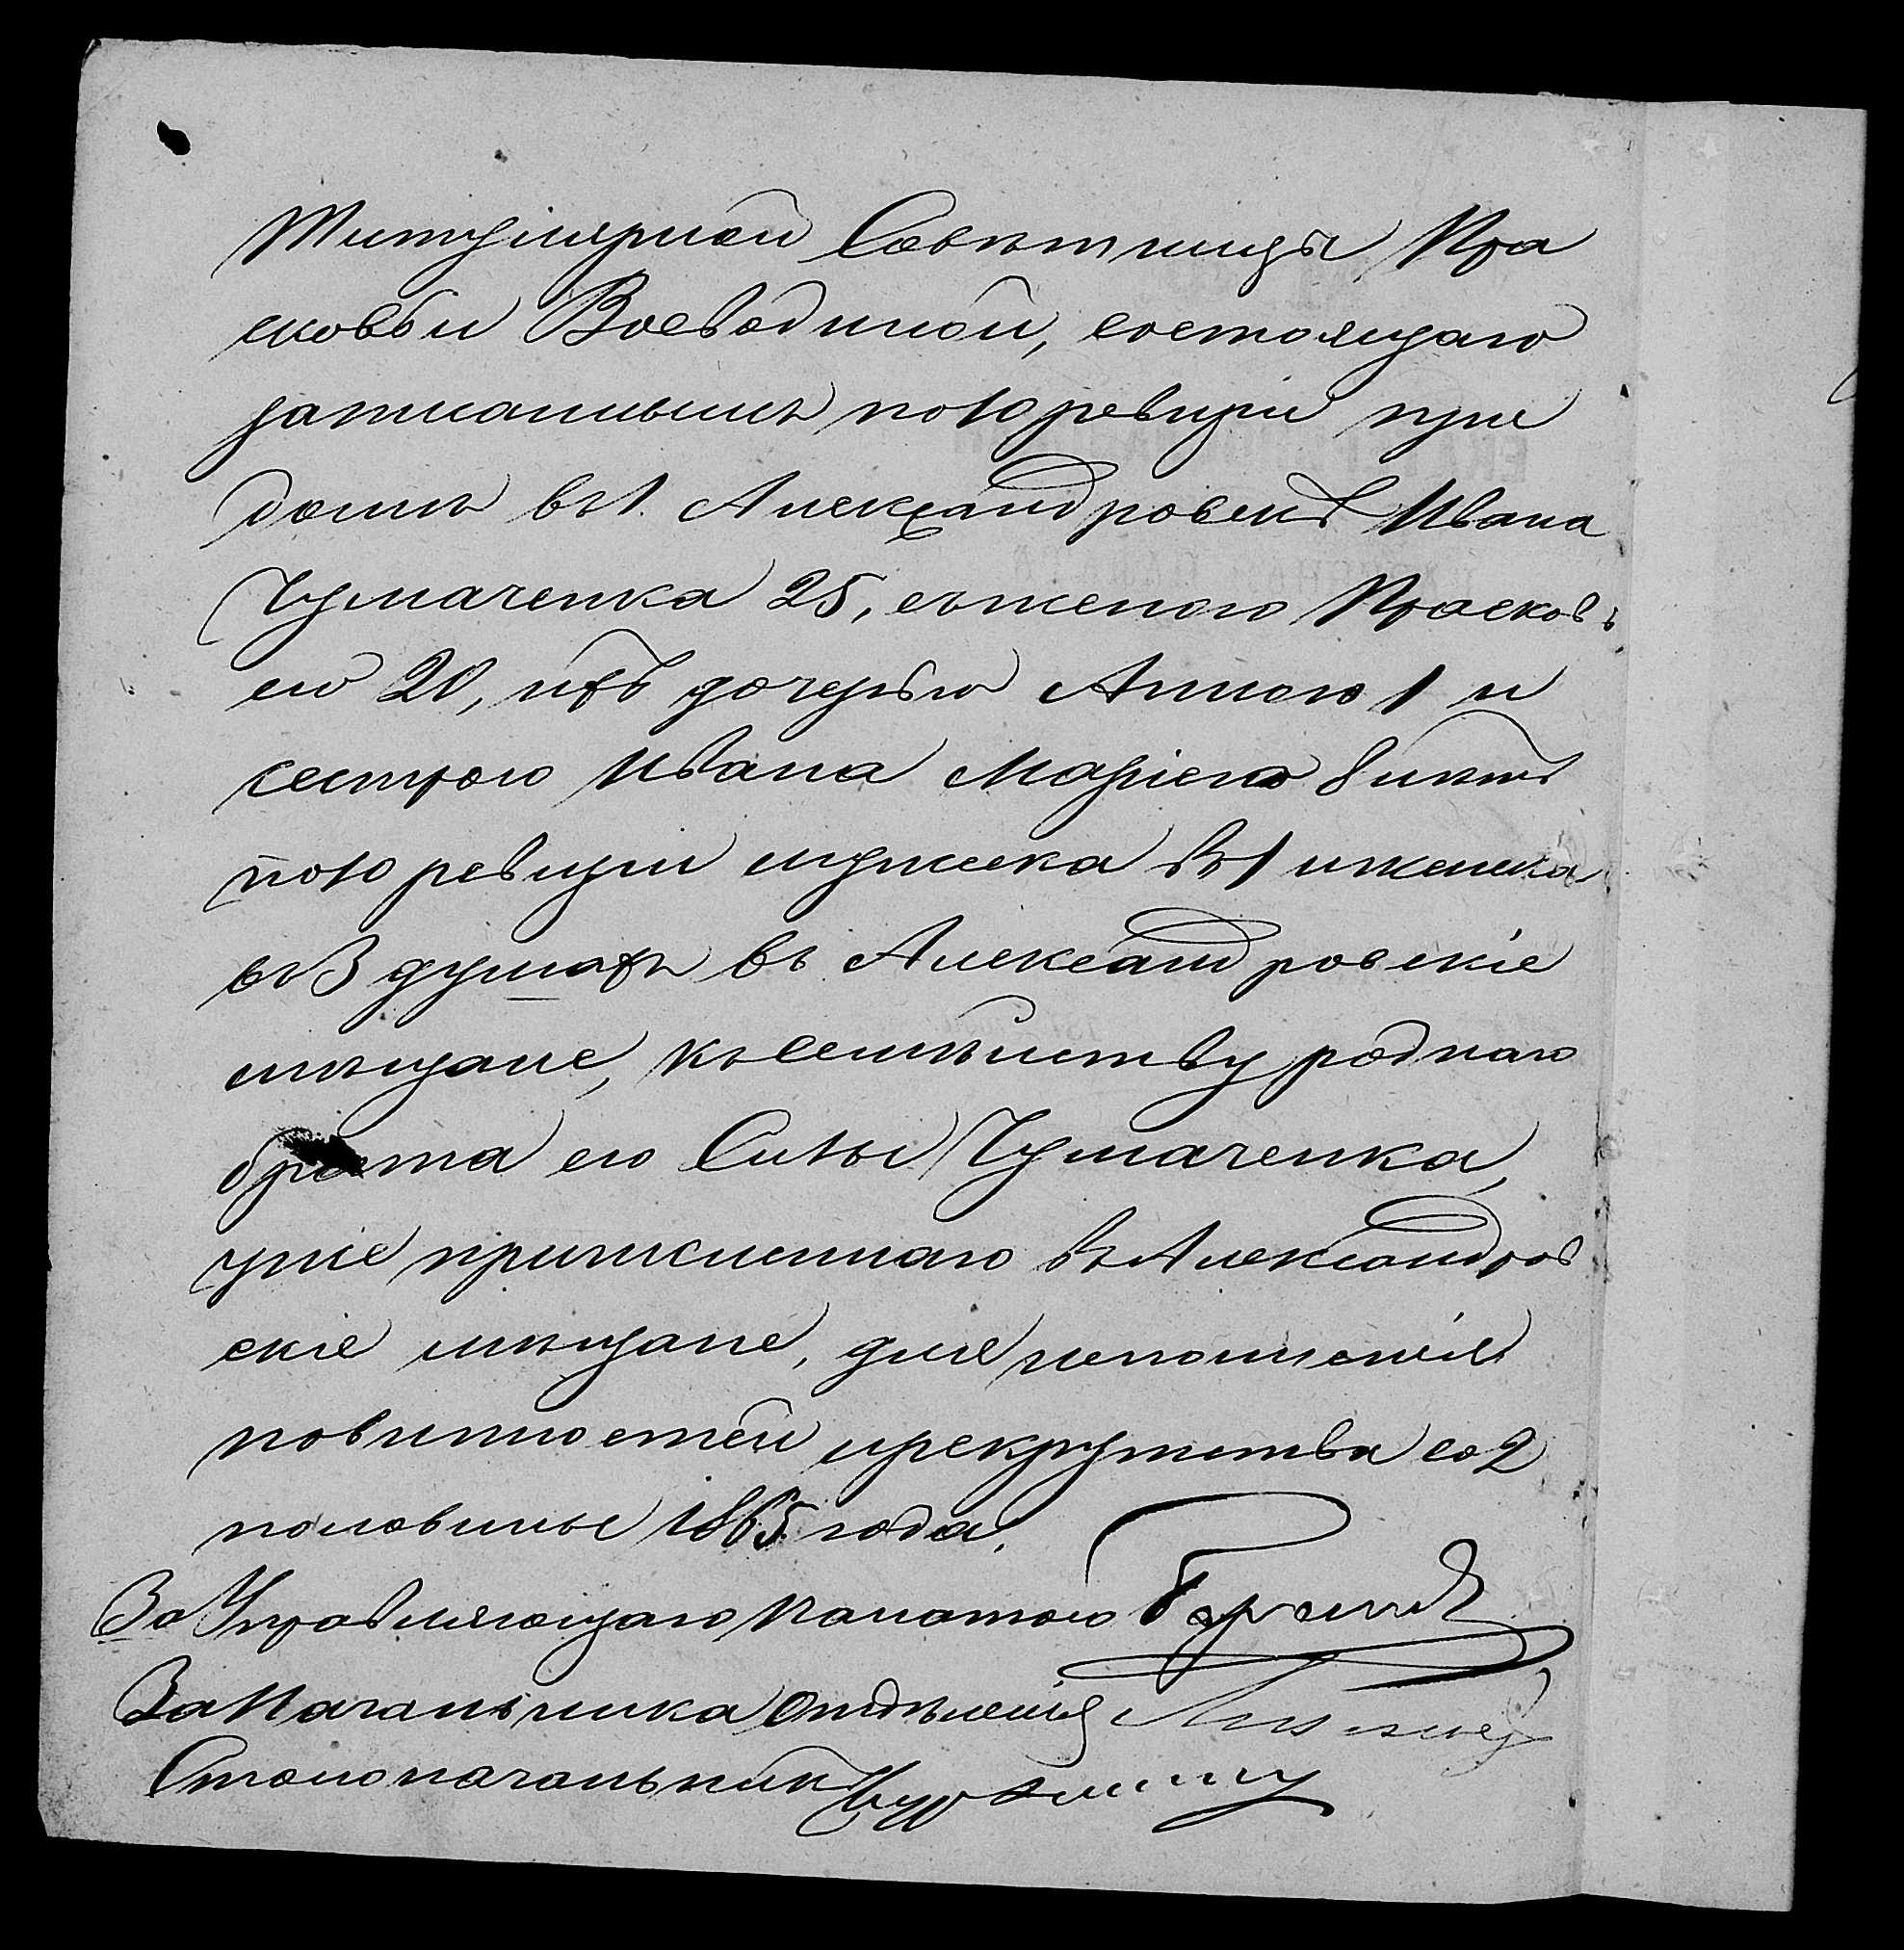 Титулярной Совѣтницы Пра
сковьи Воеводиной, состоящаго
записаннымъ по 10 ревизіи при
домѣ въ г. Александровскѣ Ивана
Чумаченка 25, съ женою Прасковь
ею 20, ихъ дочерью Анною 1 и
сестрою Ивана Маріею 8 лѣтъ
по 10 ревизіи мужеска въ 1 и женска
въ 3 душахъ въ Александровскіе
мѣщане, къ семѣйству роднаго
брата его Силы Чумаченка,
уже причисленнаго въ Александров
скіе мѣщане, для исполненія
повинностей и рекрутства со 2
половины 1865 года.
За Управляющаго Палатою
За Начальника Отдѣленія
Столоначальникъ